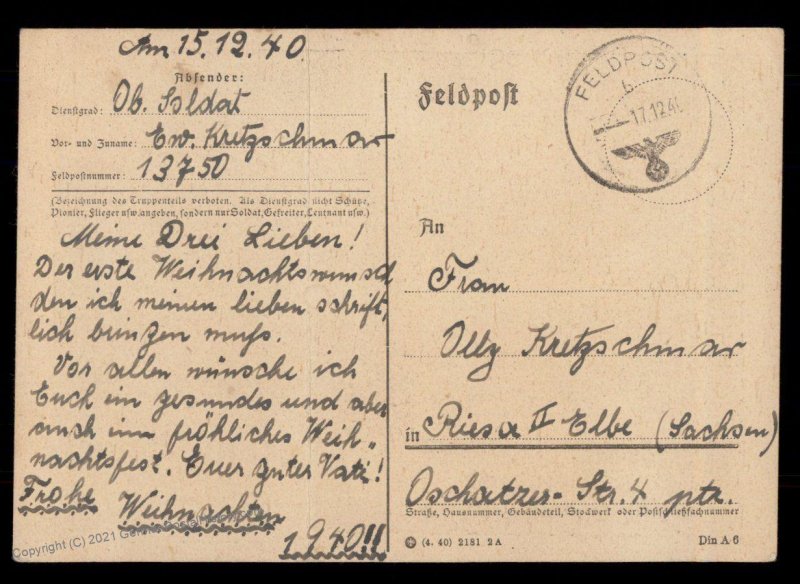 Am 15.12.40.
Absender:
Dienstgrad: Ob. Soldat
Vor- und Zuname: Ew. Kretzschmar
Feldpostnummer: 13750
(Bezeichnung des Truppenteils verboten. Als Dienstgrad nicht Schütze,
Pionier, Flieger usw. angeben, sondern nur Soldat, Gefreiter, Leutnant usw.)
Meine Drei Lieben!
Der erste Weihnachtswunsch
den ich meinen lieben schrift,
lich bringen muß.
Vor allen wünsche ich
Euch ein gesundes und aber
auch ein fröhliches Weih-
nachtsfest. Euer guter Vati!
Frohe Weihnachten
1940!!
Feldpost
FELDPOST
b
17.12.40
An
Frau
Olly Kretzschmar
in Riesa II Elbe (Sachsen)
Oschatzer-Str. 4 ptr.
Straße, Hausnummer, Gebäudeteil, Stockwerk oder Postschließfachnummer
(4. 40) 2181 2 A
Din A 6
Copyright (C) 2021